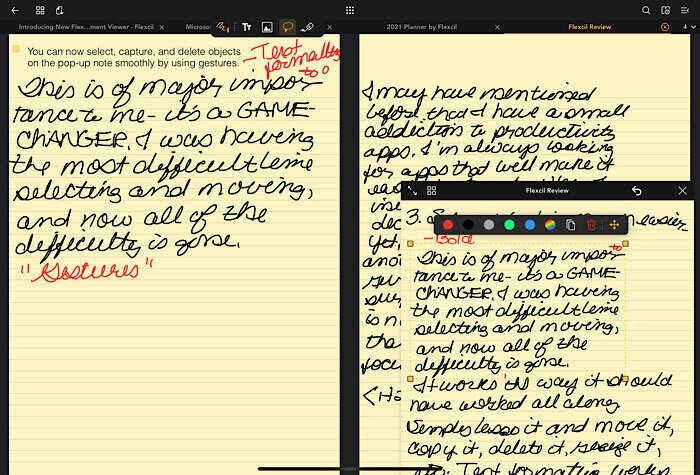 Introducing New Flex...ment Viewer - Flexcil
Microso
2021 Planner by Flexcil
Flexcil Review
4
You can now select, capture, and delete objects
on the pop-up note smoothly by using gestures.
- Text
formatting
too
This is of major impor
tance to me- it's a GAME-
CHANGER. I was having
the most difficult time
selecting and moving,
and now all of the
difficulty is gone.
"Gestures"
I may have mentioned
before that I have a small
addiction to productivity
apps. I'm always looking
for apps that will make it
Flexcil Review
3.
easier
- Bold
to
This is of major impor
tance to me- it's a GAME-
CHANGER. I was having
the most difficult time
selecting and moving,
and now all of the
difficulty is gone.
It works the way it should
have worked all along
Simply lasso it and move it,
copy it, delete it, resize it,
etc. Text formatting works